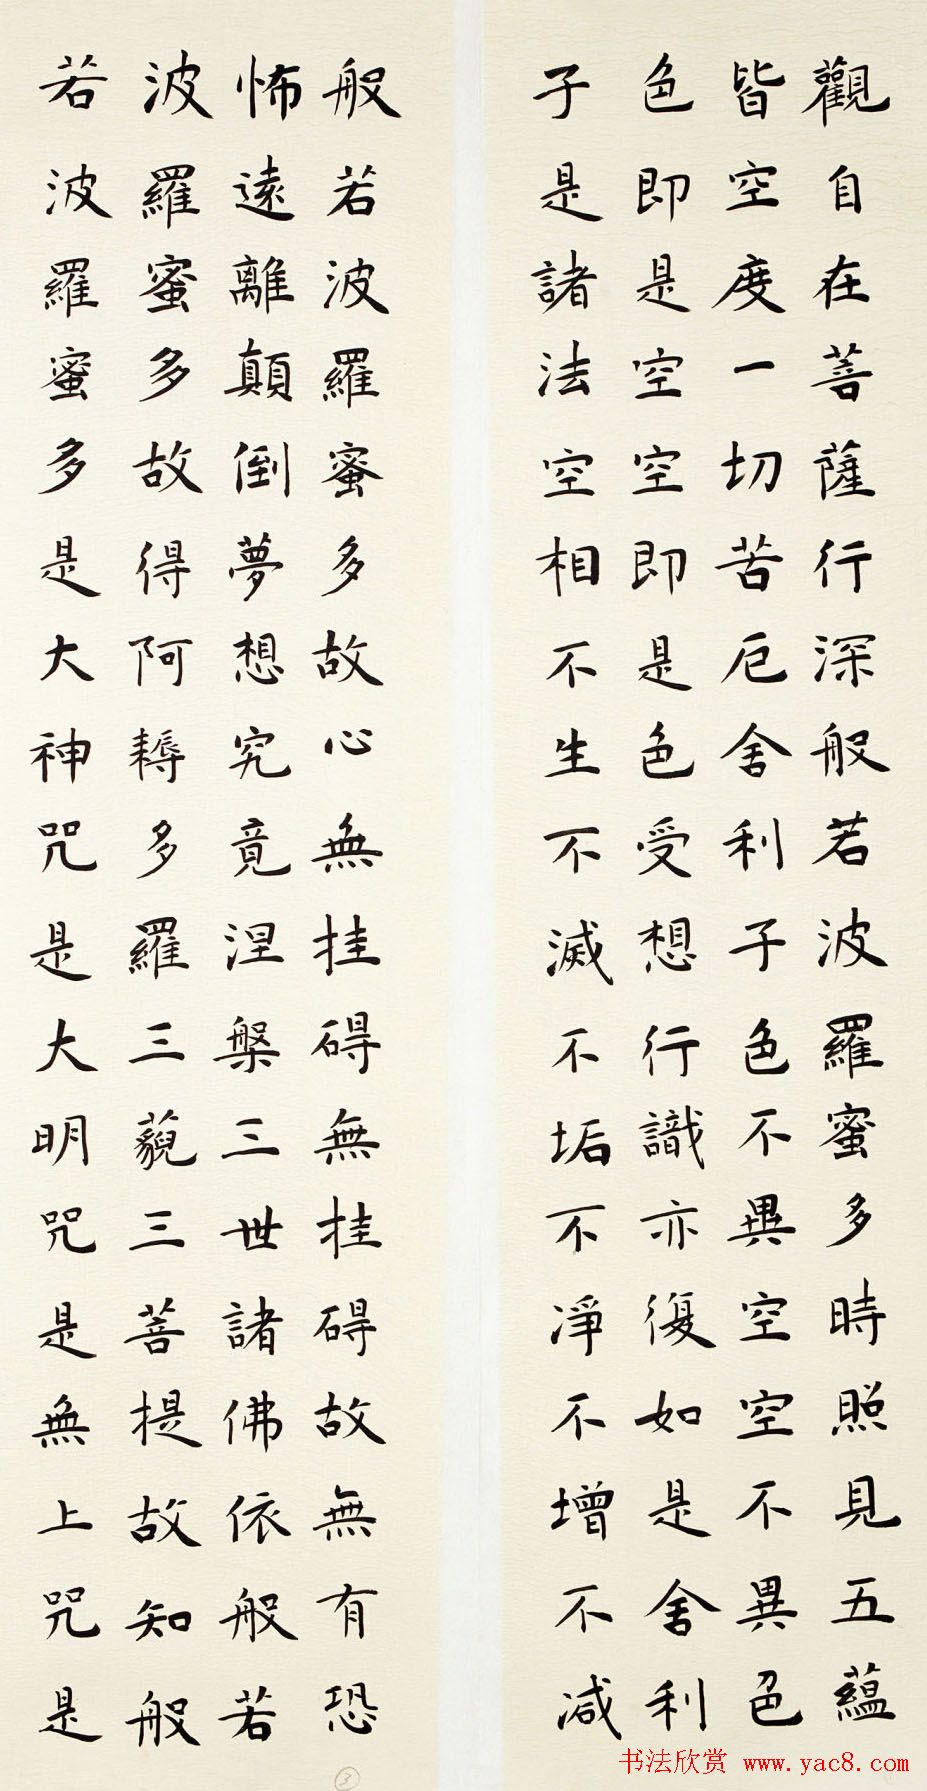 觀自在菩薩行深般若波羅蜜多時照見五蘊
皆空度一切苦厄舍利子色不異空空不異色
色即是空空即是色受想行識亦復如是舍利
子是諸法空相不生不滅不垢不淨不增不减
般若波羅蜜多故心無挂碍無挂碍故無有恐
怖遠離顛倒夢想究竟涅槃三世諸佛依般若
波羅蜜多故得阿耨多羅三藐三菩提故知般
若波羅蜜多是大神咒是大明咒是無上咒是
3
书法欣赏 www.yac8.com